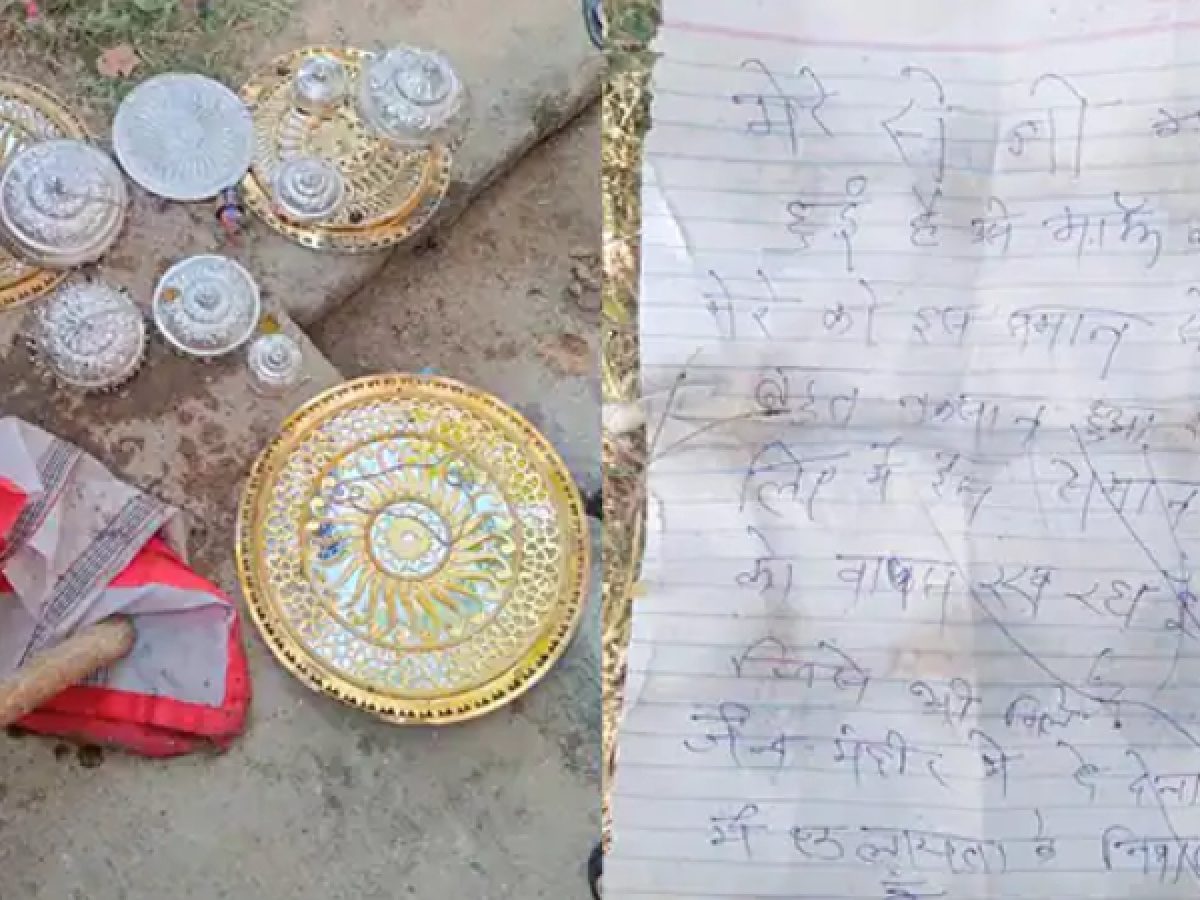 मेरे से जो
हुई है उसे माफ
मेरे को इस समान
बहुत नुकसान हुआ
लिए में इस सामान
को वापस रख रहा
जिसे भी मिले
जैन मंदीर मे दे देना
में